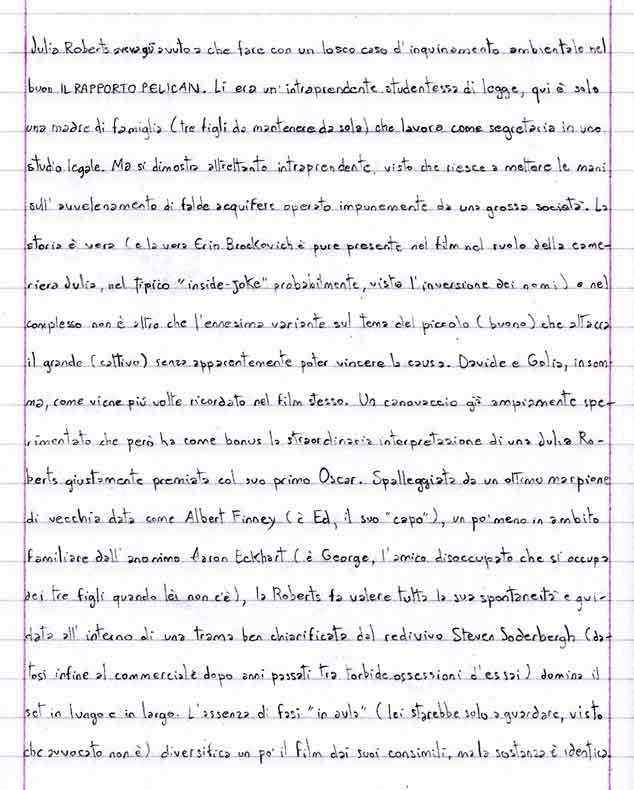 Julia Roberts aveva già avuto a che fare con un losco caso d'inquinamento ambientale nel
buon IL RAPPORTO PELICAN. Lì era un'intraprendente studentessa di legge, qui è solo
una madre di famiglia (tre figli da mantenere da sola) che lavora come segretaria in uno
studio legale. Ma si dimostra altrettanto intraprendente, visto che riesce a mettere le mani
sull'avvelenamento di falde acquifere operato impunemente da una grossa società. La
storia è vera (e la vera Erin Brockovich è pure presente nel film nel ruolo della came-
riera Julia, nel tipico "inside-joke" probabilmente, visto l'inversione dei nomi) e nel
complesso non è altro che l'ennesima variante sul tema del piccolo (buono) che attacca
il grande (cattivo) senza apparentemente poter vincere la causa. Davide e Golia, insom
ma, come viene più volte ricordato nel film stesso. Un canovaccio già ampiamente spe-
rimentato che però ha come bonus la straordinaria interpretazione di una Julia Ro-
berts giustamente premiata col suo primo Oscar. Spalleggiata da un ottimo marpione
di vecchia data come Albert Finney (è Ed, il suo "capo"), un po' meno in ambito
familiare dall'anonimo Aaron Eckhart (è George, l'amico disoccupato che si occupa
dei tre figli quando lei non c'è), la Roberts fa valere tutta la sua spontaneità e gui-
data all'interno di una trama ben chiarificata dal redivivo Steven Soderbergh (da-
tosi infine al commerciale dopo anni passati tra torbide ossessioni d'essai) domina il
set in lungo e in largo. L'assenza di fasi "in aula" (lei starebbe solo a guardare, visto
che avvocato non è) diversifica un po' il film dai suoi consimili, ma la sostanza è identica.